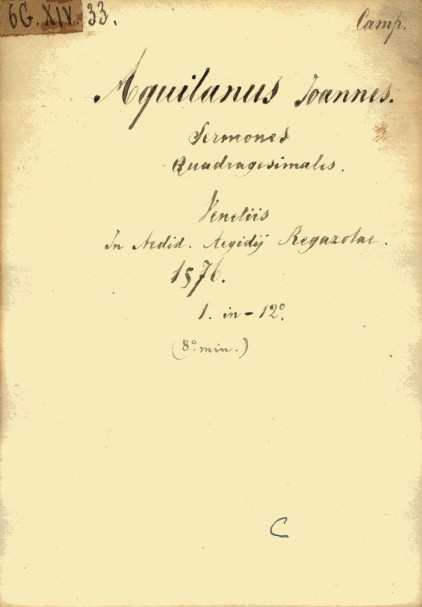 6G. XIV. 33.
Camp.
Aquilanus Joannes.
Sermones
Quadragesimales.
Venetiis
In Aedid. Aegidij Regazolae.
1576.
1. in - 12º.
(8.º min.)
C